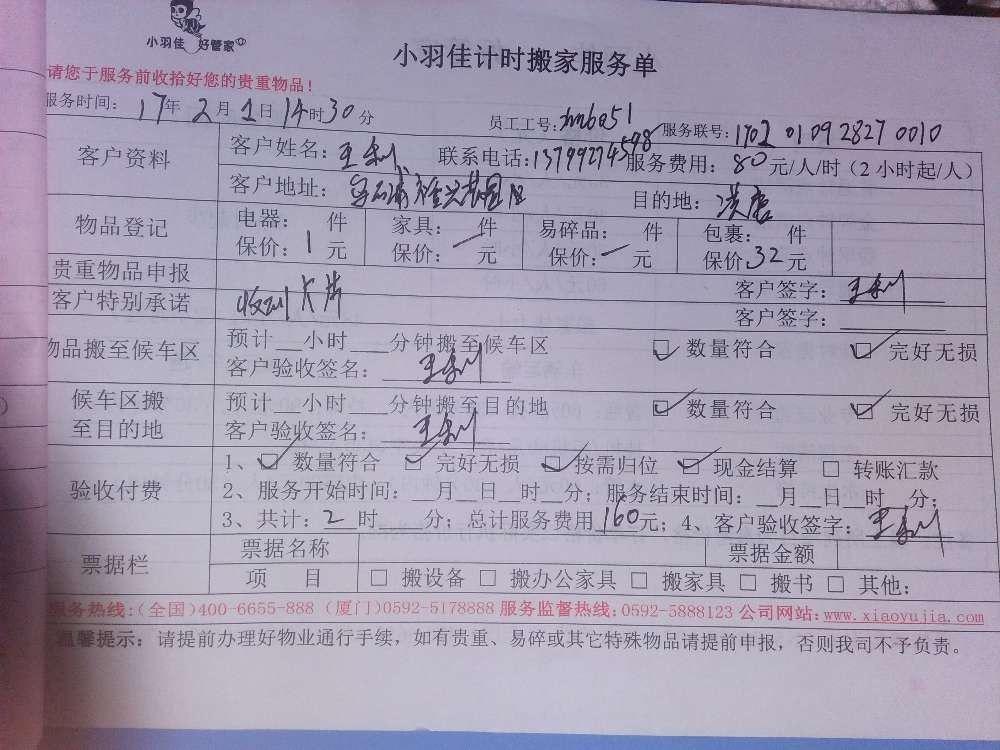 小羽佳 好管家
小羽佳计时搬家服务单
请您于服务前收拾好您的贵重物品！
服务时间：17年2月1日14时30分
员工工号：xm6a51 服务联号：1702 0109 2827 0010
客户资料 客户姓名：王 联系电话：13799274598 服务费用：80元/人/时（2小时起/人）
客户地址： 目的地：
物品登记 电器： 件 家具： 件 易碎品： 件 包裹： 件
保价：1元 保价：一元 保价：一元 保价：32元
贵重物品申报 客户签字：王
客户特别承诺 收到卡片 客户签字：
物品搬至候车区 预计__小时___分钟搬至候车区 ☑ 数量符合 ☑ 完好无损
客户验收签名：王
候车区搬至目的地 预计__小时___分钟搬至目的地 ☑ 数量符合 ☑ 完好无损
客户验收签名：王
验收付费 1、☑ 数量符合 ☑ 完好无损 ☑ 按需归位 ☑ 现金结算 □ 转账汇款
2、服务开始时间：__月__日__时__分；服务结束时间：__月__日__时__分；
3、共计：2时___分；总计服务费用160元；4、客户验收签字：王
票据栏 票据名称 票据金额
项 目 □ 搬设备 □ 搬办公家具 □ 搬家具 □ 搬书 □ 其他：
服务热线：（全国）400-6655-888（厦门）0592-5178888 服务监督热线：0592-5888123 公司网站：www.xiaoyujia.com
温馨提示：请提前办理好物业通行手续，如有贵重、易碎或其它特殊物品请提前申报，否则我司不予负责。